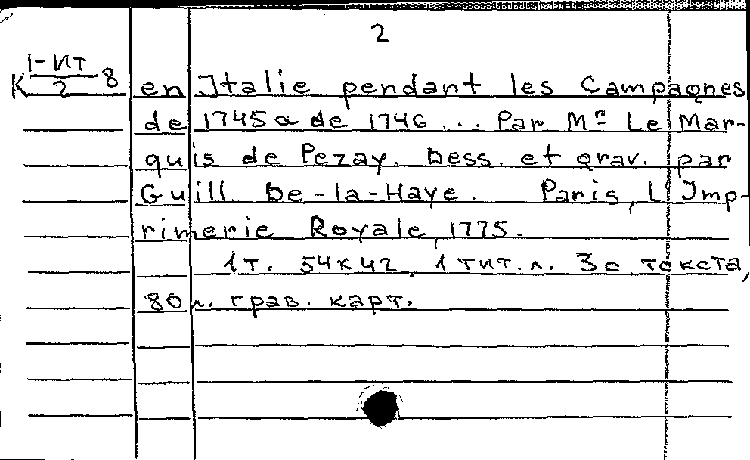 2
К 1-ИТ/2 8
en Italie pendant les Campagnes
de 1745 & de 1746 ... Par Mr Le Mar-
quis de Pezay. Dess. et grav. par
Guill. De-la-Haye. Paris, L'Imp-
rimerie Royale, 1775.
1 т. 54x42, 1 тит. л. 3 с текста,
80 л. грав. карт.